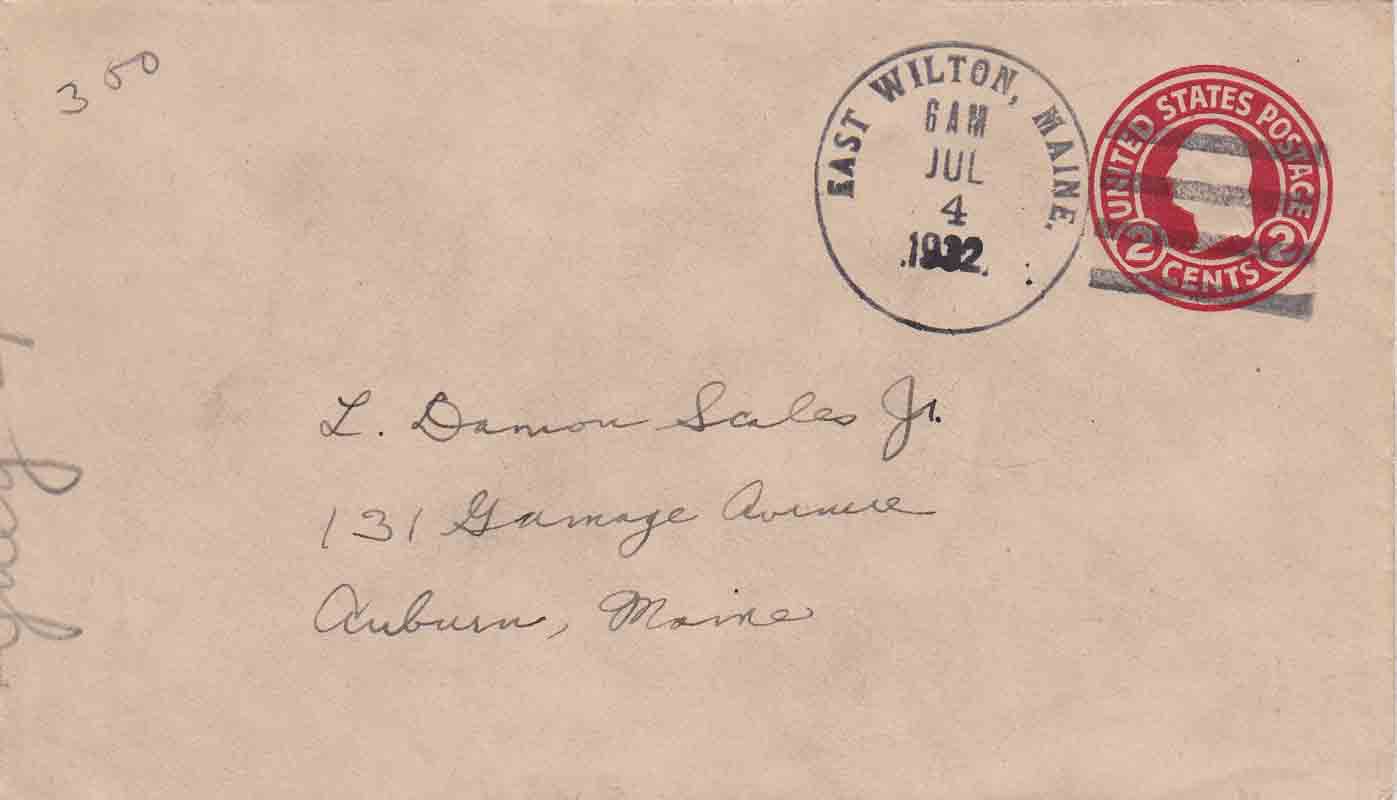 3 00
EAST WILTON, MAINE.
6 AM
JUL
4
1932
UNITED STATES POSTAGE
2 CENTS 2
L. Damon Scales Jr.
131 Gamage Avenue
Auburn, Maine